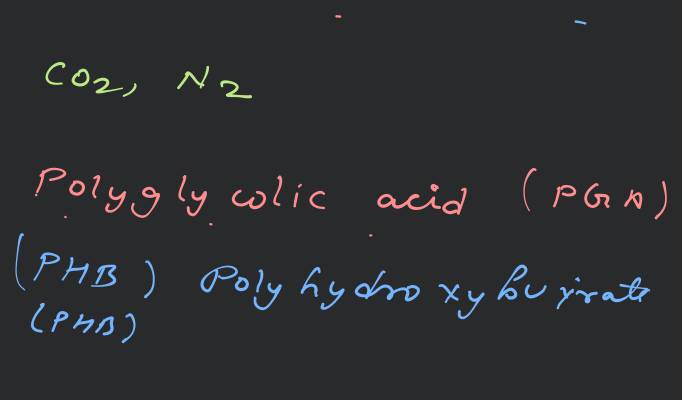 CO2, N2
Polyglycolic acid (PGA)
(PHB) Polyhydroxybuyrate
(PHB)